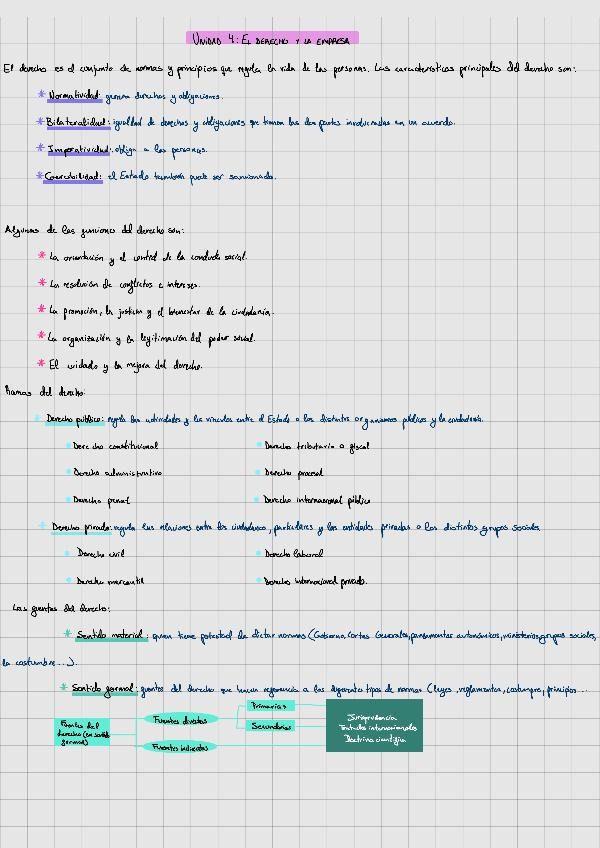 UNIDAD 4: EL DERECHO Y LA EMPRESA
El derecho es el conjunto de normas y principios que regula la vida de las personas. Las características principales del derecho son:
* Normatividad: genera derechos y obligaciones.
* Bilateralidad: igualdad de derechos y obligaciones que tienen las dos partes involucradas en un acuerdo.
* Imperatividad: obliga a las personas.
* Coercibilidad: el Estado también puede ser sancionado.
Algunas de las funciones del derecho son:
* La orientación y el control de la conducta social.
* La resolución de conflictos e intereses.
* La promoción, la justicia y el bienestar de la ciudadanía.
* La organización y la legitimación del poder social.
* El cuidado y la mejora del derecho.
Ramas del derecho:
* Derecho público: regula las actividades y los vínculos entre el Estado o los distintos organismos públicos y la ciudadanía.
• Derecho constitucional • Derecho tributario o fiscal
• Derecho administrativo • Derecho procesal
• Derecho penal • Derecho internacional público
* Derecho privado: regula las relaciones entre los ciudadanos, particulares y las entidades privadas o los distintos grupos sociales.
• Derecho civil • Derecho laboral
• Derecho mercantil • Derecho internacional privado.
Las fuentes del derecho:
* Sentido material: quien tiene potestad de dictar normas (Gobierno, Cortes Generales, parlamentos autonómicos, ministerios, grupos sociales,
la costumbre...).
* Sentido formal: fuentes del derecho que hacen referencia a los diferentes tipos de normas (leyes, reglamentos, costumbre, principios...
Fuentes del
derecho (en sentido
formal)
Fuentes directas
Fuentes indirectas
Primarias
Secundarias
Jurisprudencia
Tratados internacionales
Doctrina científica